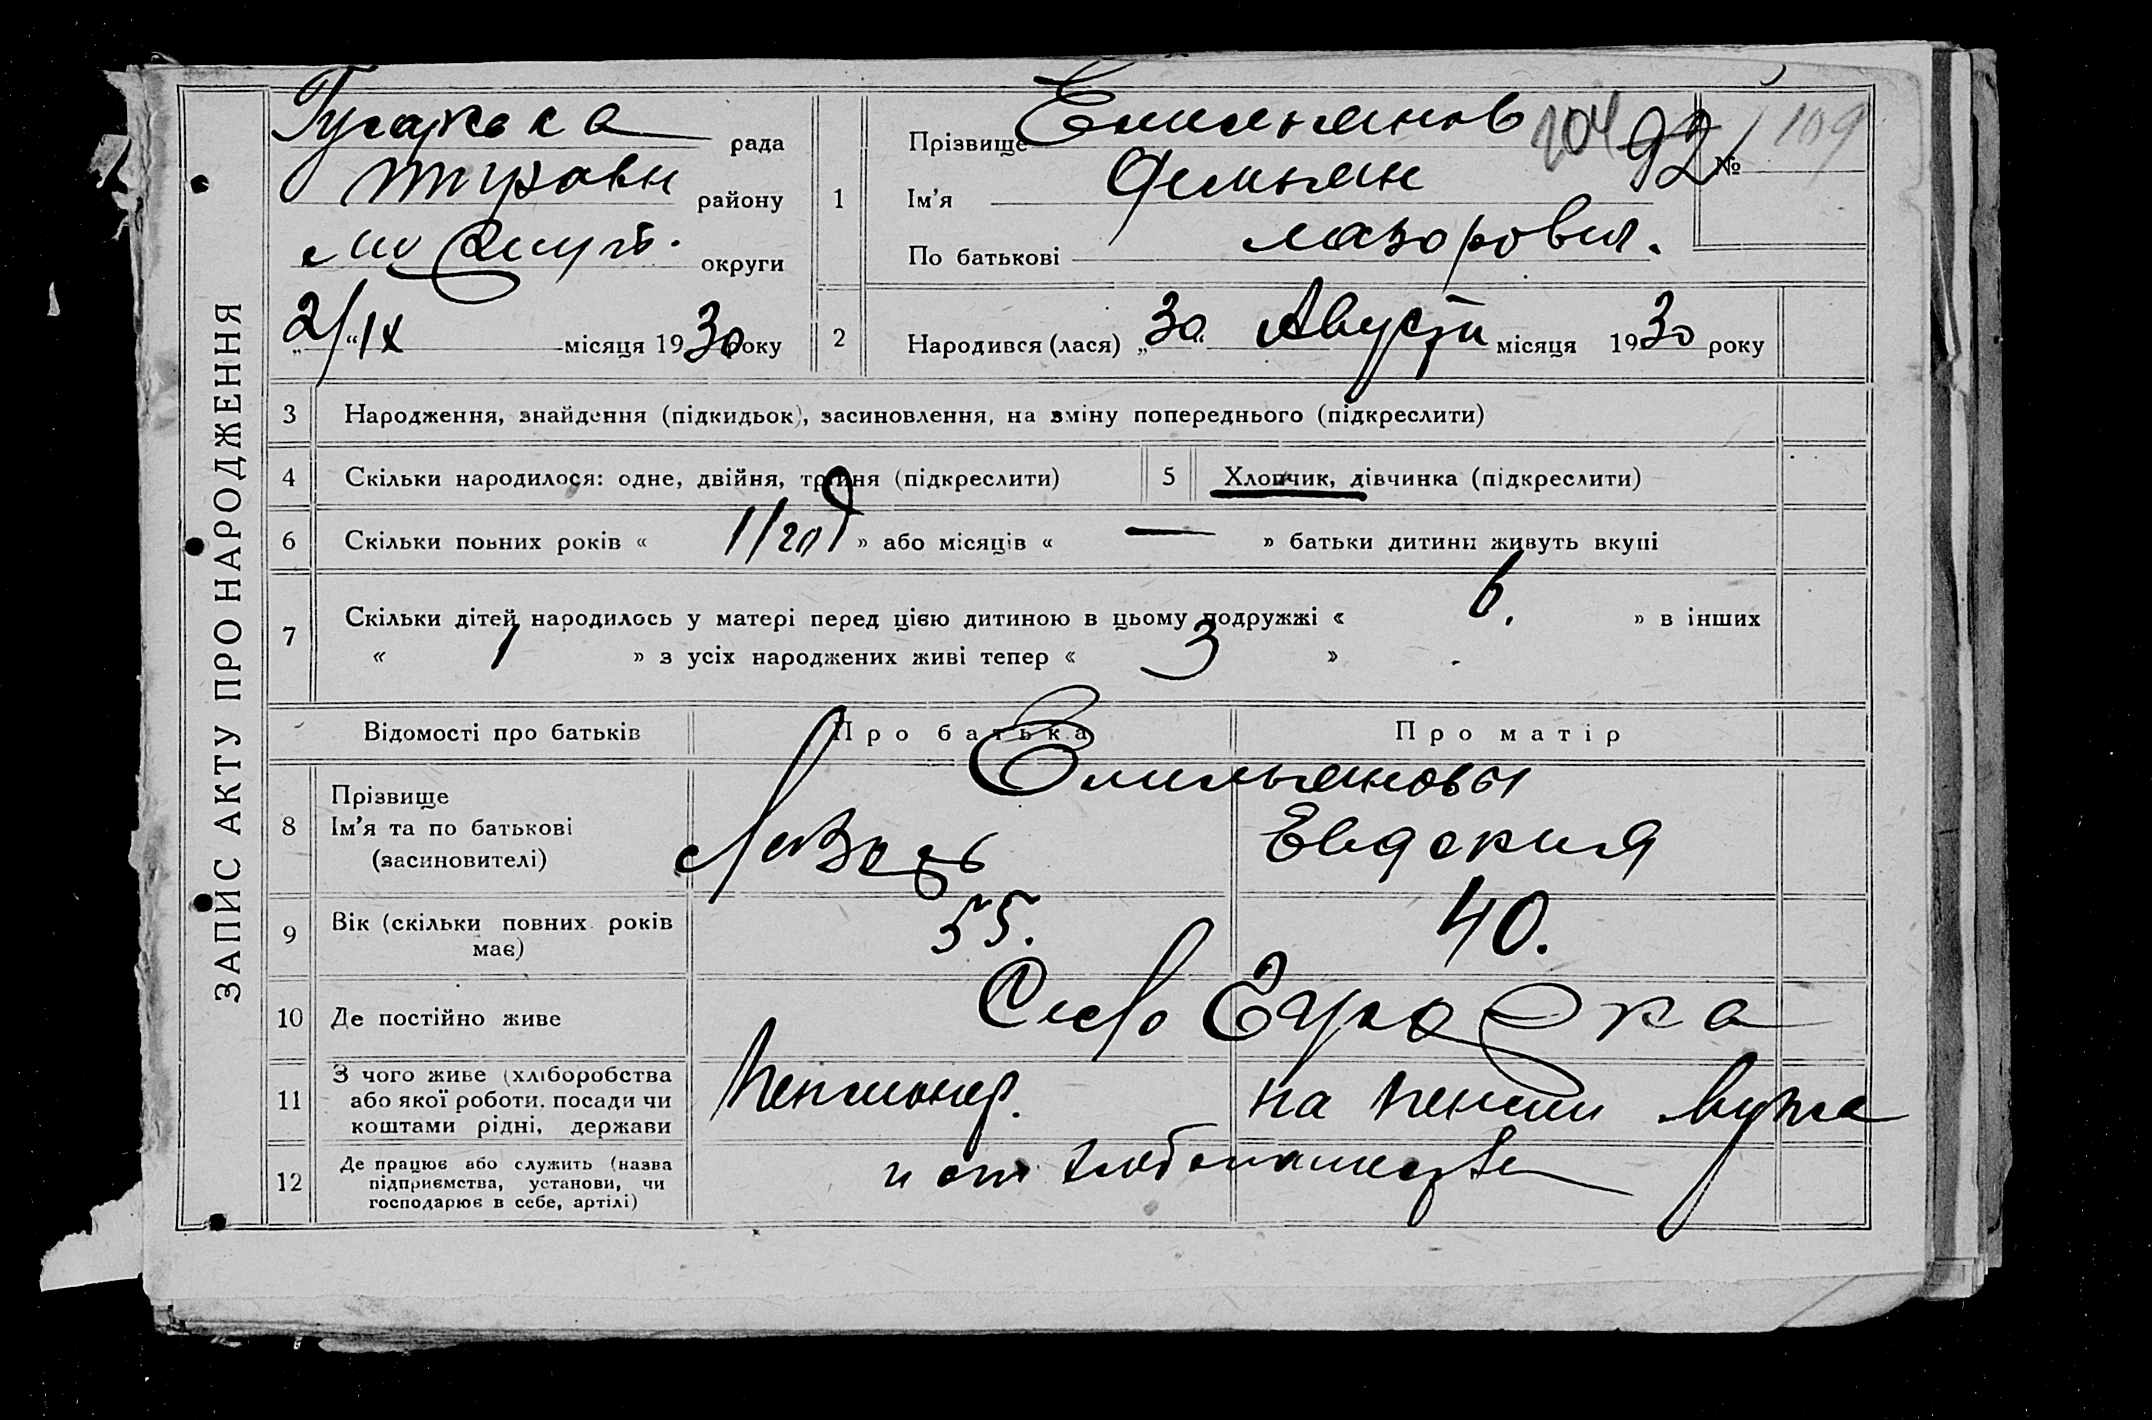 ЗАПИС АКТУ ПРО НАРОДЖЕННЯ
рада
району
округи
2/IX місяця 1930 року
1
Прізвище Емильянов
Ім'я Демьян
По батькові Лазорович.
104 92 № 109
2 Народився (лася) „30“ Августа місяця 1930 року
3 Народження, знайдення (підкидьок), засиновлення, на зміну попереднього (підкреслити)
4 Скільки народилося: одне, двійня, трійня (підкреслити)
5 Хлопчик, дівчинка (підкреслити)
6 Скільки повних років « 1/год » або місяців « — » батьки дитини живуть вкупі
7 Скільки дітей народилось у матері перед цією дитиною в цьому подружжі « 6. » в інших
« 1 » з усіх народжених живі тепер « 3 »
Відомості про батьків
Про батька
Про матір
8 Прізвище
Ім'я та по батькові
(засиновителі)
Емильяновы
Лазарь
Евдокия
9 Вік (скільки повних років
має)
55.
40.
10 Де постійно живе
Село
11 З чого живе (хліборобства
або якої роботи, посади чи
коштами рідні, держави
Пенсионер.
на пенсии мужа
12 Де працює або служить (назва
підприємства, установи, чи
господарює в себе, артілі)
и от хлебопашества